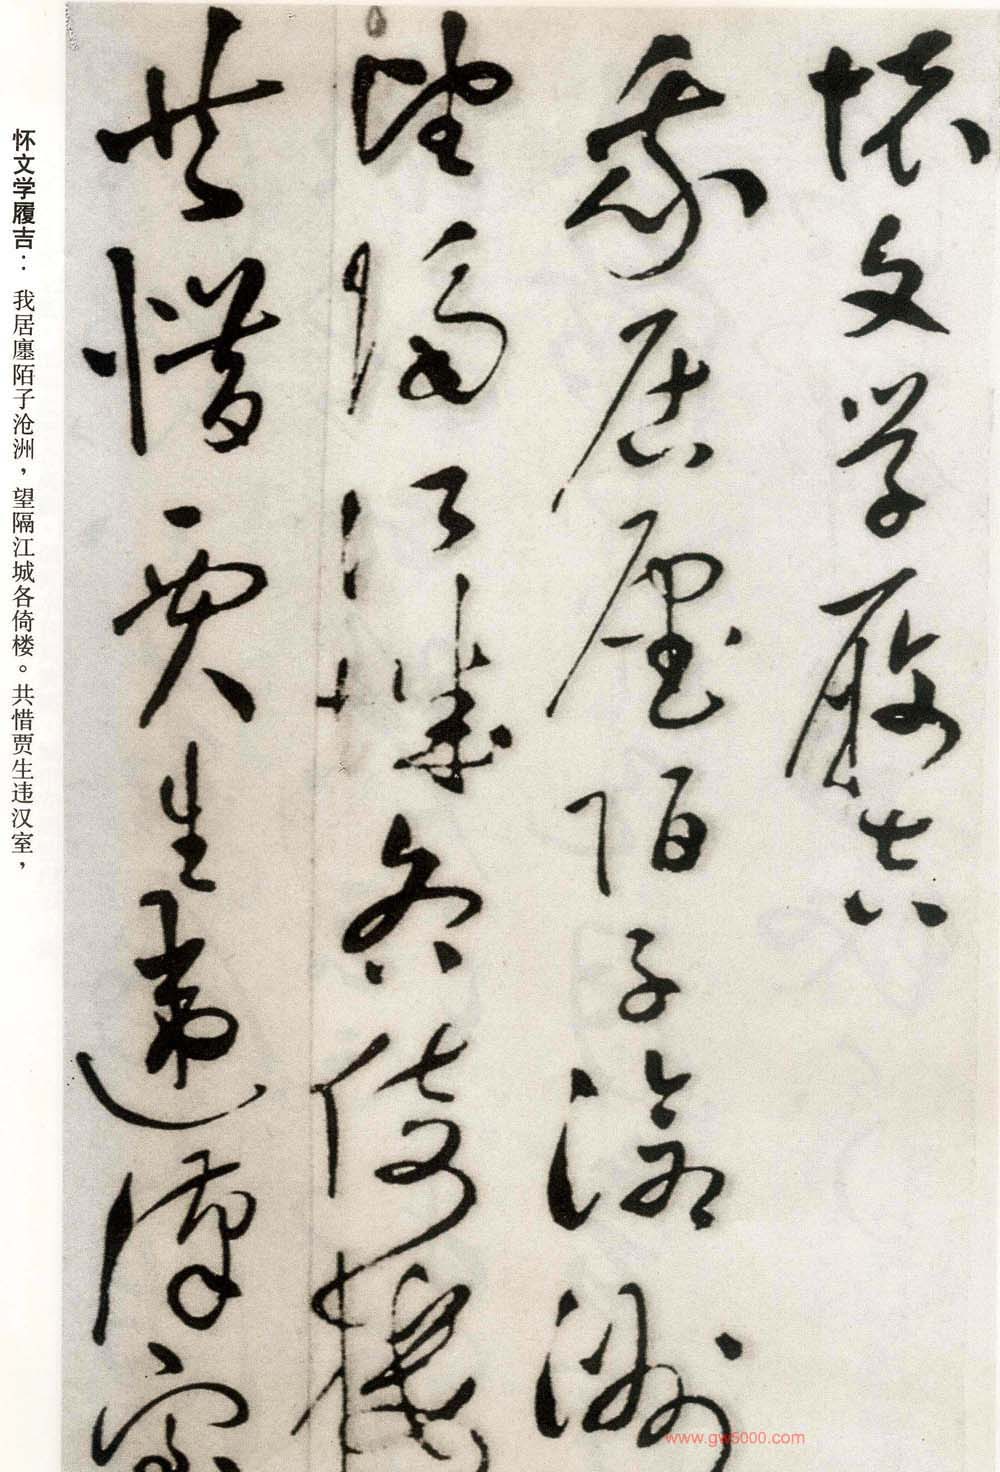 懷文学履吉
我居廛陌子滄洲
望隔江城各倚樓
共惜賈生違漢室
怀文学履吉：我居廛陌子沧洲，望隔江城各倚楼。共惜贾生违汉室，
www.gw5000.com